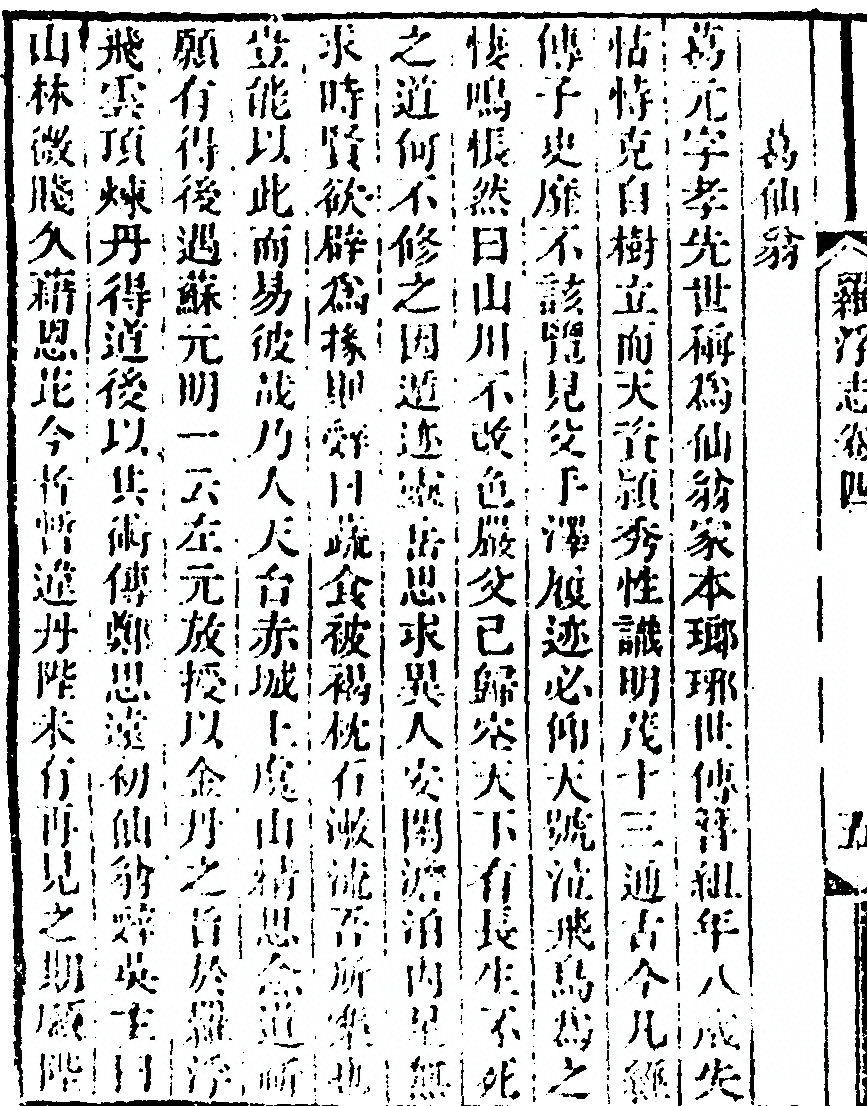 葛仙翁
葛元字孝先世稱為仙翁家本瑯琊世傳普祖年八歲失
怙恃克自樹立而天資穎秀性識明茂十三通古今凡經
傳子史靡不該覽見父手澤履迹必仰天號泣飛鳥為之
悽鳴悵然曰山川不改色嚴父已歸空天下有長生不死
之道何不修之因遁迹靈岳思求異人安閒澹泊內足無
求時賢欲辟為掾則辭曰蔬食被褐枕石漱流吾所樂也
豈能以此而易彼哉乃入天台赤城上虞山精思念道祈
願有得後遇蘇元明一云左元放授以金丹之旨於羅浮
飛雲頂煉丹得道後以其術傳鄭思遠初仙翁辭吳主曰
山林微賤久藉恩庇今者暫違丹陛未有再見之期願陛
羅浮志卷四
五